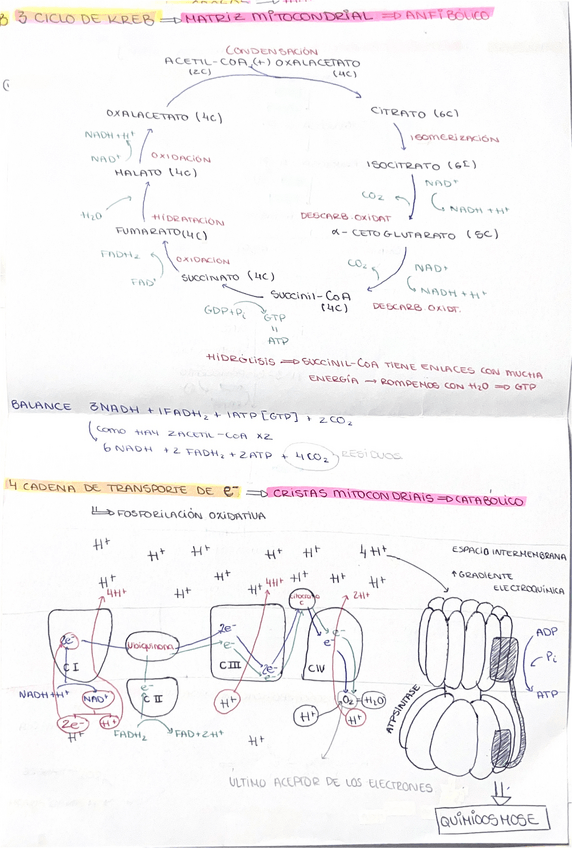 3 CICLO DE KREB ⇒ MATRIZ MITOCONDRIAL ⇒ ANFIBÓLICO
CONDENSACIÓN
ACETIL-COA (+) OXALACETATO
(2C) (4C)
OXALACETATO (4C)
CITRATO (6C)
NADH+H⁺
NAD⁺
OXIDACIÓN
ISOMERIZACIÓN
MALATO (4C)
ISOCITRATO (6C)
CO₂
NAD⁺
NADH+H⁺
H₂O
HIDRATACIÓN
DESCARB. OXIDAT
FUMARATO (4C)
α-CETOGLUTARATO (5C)
FADH₂
FAD⁺
OXIDACIÓN
CO₂
NAD⁺
NADH+H⁺
SUCCINATO (4C)
SUCCINIL-COA
(4C)
DESCARB OXIDT.
GDP+Pi
GTP
=
ATP
HIDRÓLISIS ⇒ SUCCINIL-COA TIENE ENLACES CON MUCHA
ENERGÍA → ROMPEMOS CON H₂O ⇒ GTP
BALANCE 3NADH + 1FADH₂ + 1ATP [GTP] + 2CO₂
COMO HAY 2ACETIL-COA X2
6 NADH + 2 FADH₂ + 2ATP + 4CO₂ RESIDUOS
4 CADENA DE TRANSPORTE DE e⁻ ⇒ CRISTAS MITOCONDRIAIS ⇒ CATABÓLICO
⇒ FOSFORILACIÓN OXIDATIVA
H⁺ H⁺ H⁺ H⁺ H⁺ 4H⁺
ESPACIO INTERMEMBRANA
H⁺ H⁺ H⁺ H⁺ H⁺
↑GRADIENTE
ELECTROQUÍMICA
4H⁺ 4H⁺ 2H⁺
CITOCROMO
C
2e⁻
UBIQUINONA
2e⁻
e⁻
e⁻
e⁻
2e⁻
C I
C III
C IV
C II
e⁻
NADH+H⁺
NAD⁺
2e⁻
H⁺
H⁺
H⁺
H⁺
O₂
H₂O
H⁺
FADH₂
FAD+2H⁺
H⁺
ATPSINTASE
ADP
Pi
ATP
ÚLTIMO ACEPTOR DE LOS ELECTRONES
QUIMIOSMOSE